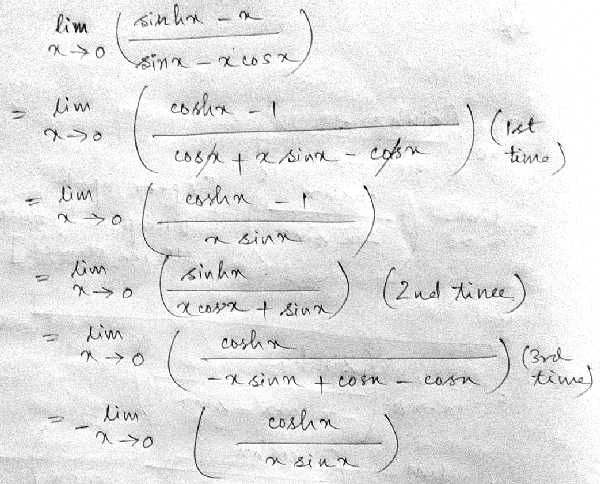 lim x→0 ( (sinhx − x) / (sinx − x cosx) )
= lim x→0 ( (coshx − 1) / (cosx + x sinx − cosx) ) (1st time)
= lim x→0 ( (coshx − 1) / (x sinx) )
= lim x→0 ( sinhx / (x cosx + sinx) ) (2nd time)
= lim x→0 ( coshx / (−x sinx + cosx − cosx) ) (3rd time)
= − lim x→0 ( coshx / (x sinx) )